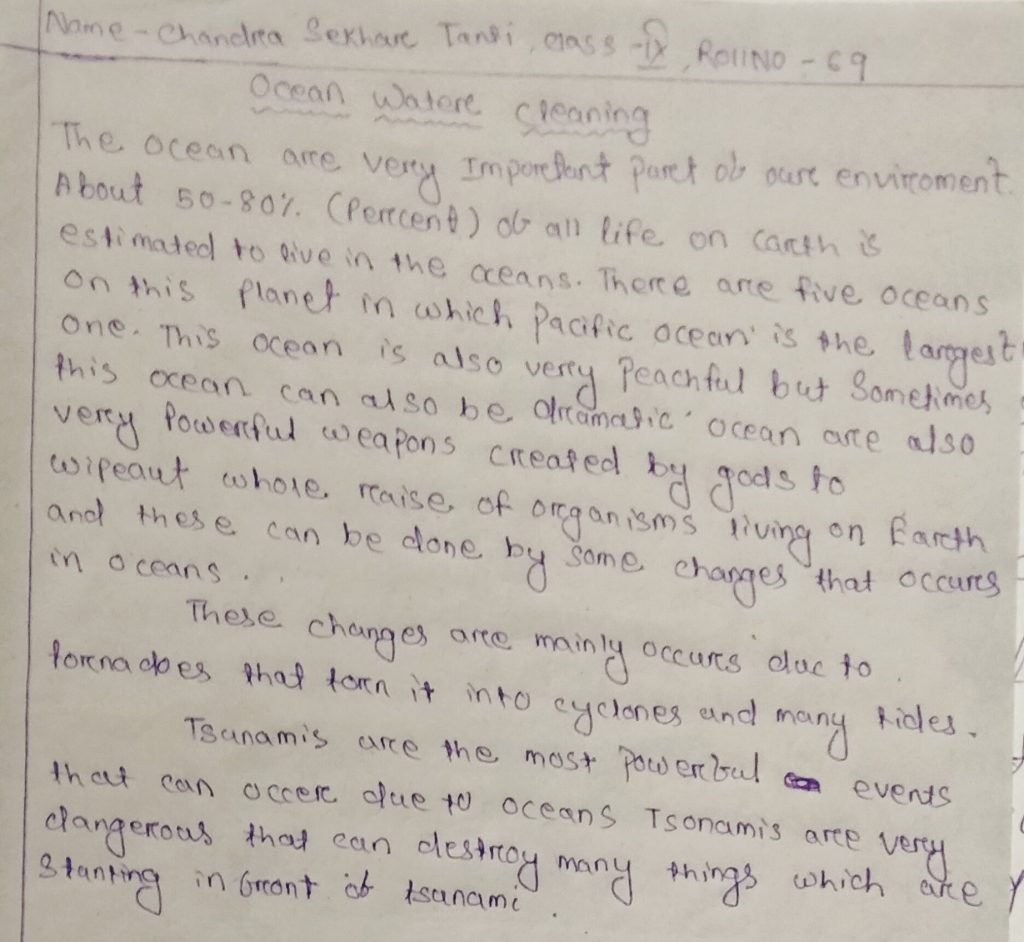 Name - Chandra Sekhare Tanti, class - IX, Roll NO - 69
Ocean Watere Cleaning
The ocean arre very Imporetant paret ob oure enviroment.
About 50-80% (Perecent) ob all life on earth is
estimated to live in the oceans. There are five oceans
on this planet in which Pacific ocean is the largest
one. This ocean is also very Peachful but Sometimes
this ocean can also be dramatic. ocean are also
very Powerful weapons created by gods to
wipeaut whole raise of organisms living on Earth
and these can be done by some changes that occures
in oceans.
These changes are mainly occurs due to
tornadoes that torn it into cyclones and many tides.
Tsunamis are the most Powerbul events
that can occere due to oceans Tsonamis are very
dangerous that can destroy many things which are
Stanting in bront ob tsunami.